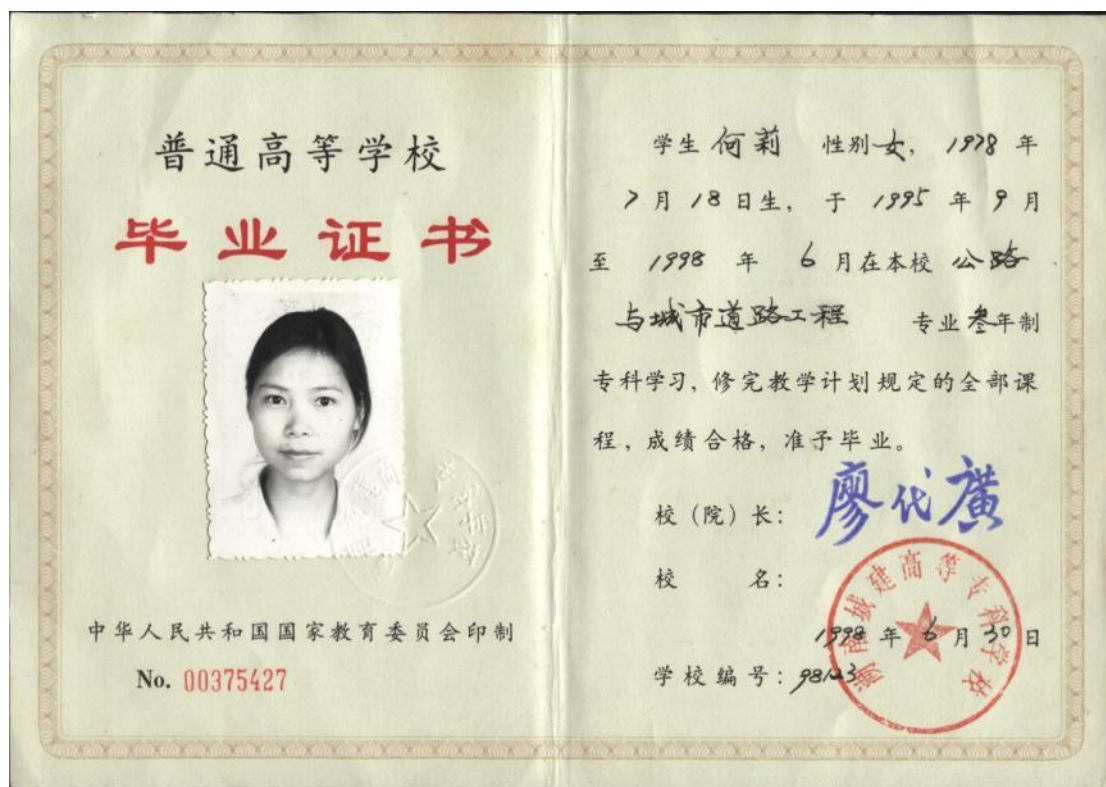 普通高等学校
毕业证书
中华人民共和国国家教育委员会印制
No. 00375427
学生 何莉 性别 女, 1978 年
7 月 18 日生, 于 1995 年 9 月
至 1998 年 6 月在本校 公路
与城市道路工程 专业 叁年制
专科学习, 修完教学计划规定的全部课
程, 成绩合格, 准予毕业。
校（院）长: 廖代廣
校 名:
湖南城建高等专科学校
1998 年 6 月 30 日
学校编号: 98123